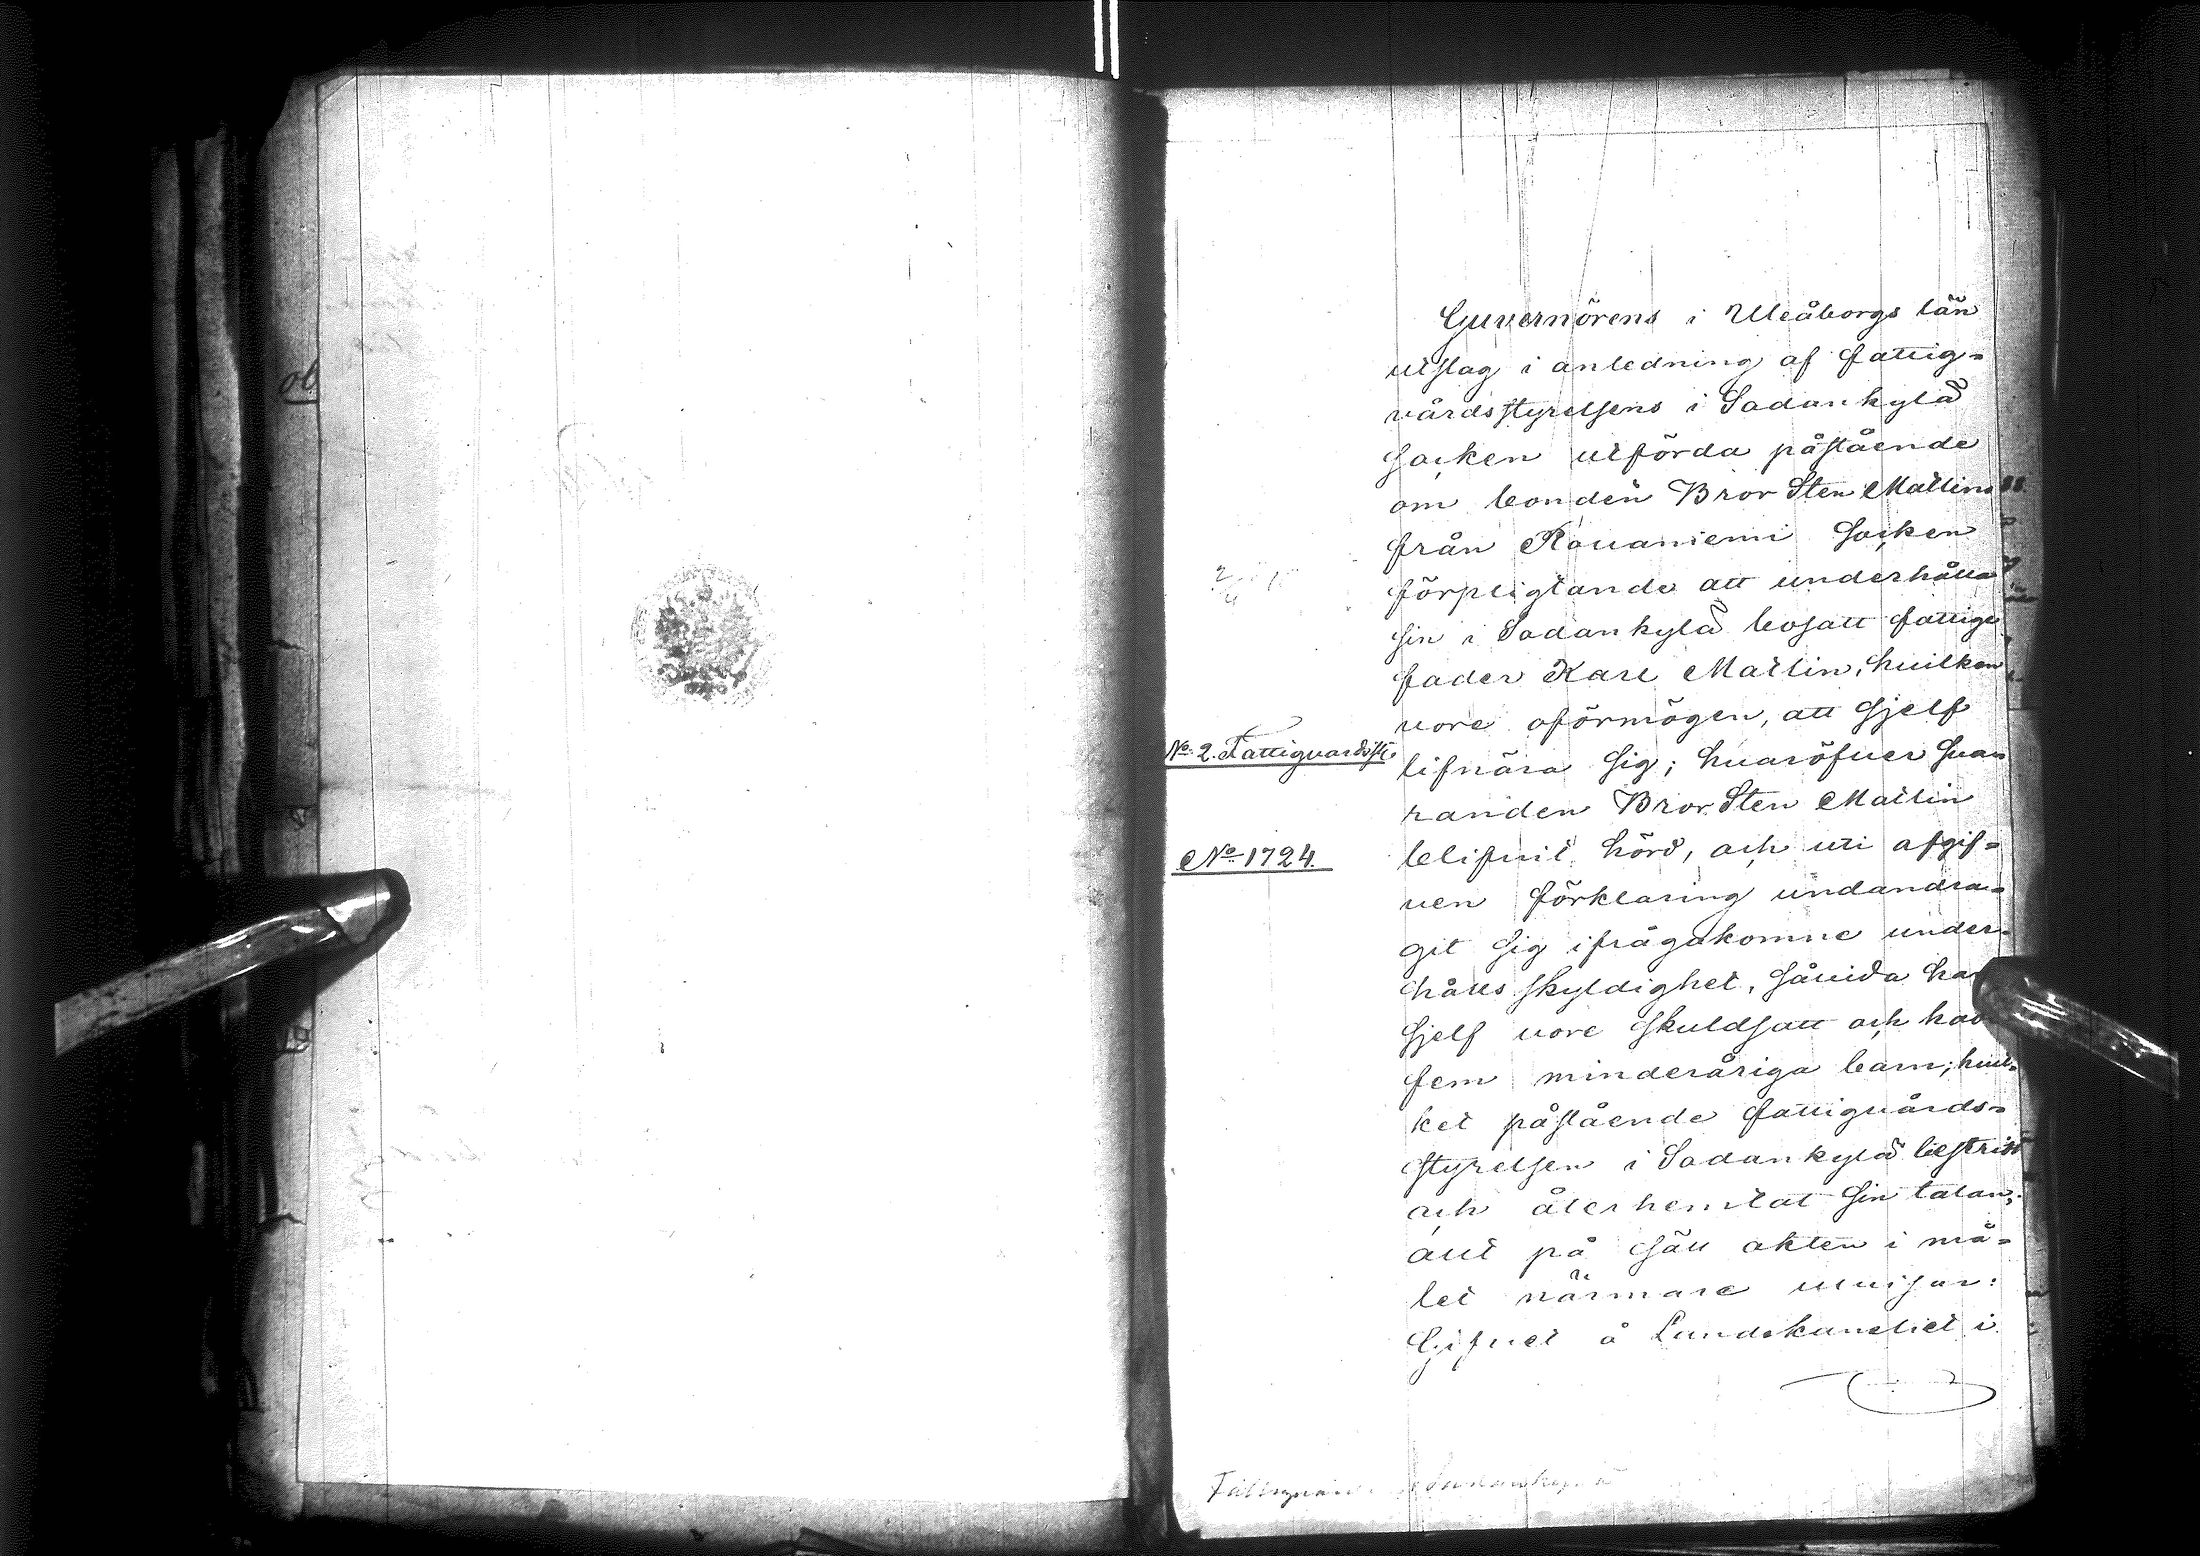 Guvernörens i Uleåborgs län
utslag i anledning af fattig=
vårdsstyrelsens i Sodankylä
socken utförda påstående
om bonden Bror Sten Mattins
från Rovaniemi socken
förpligtande att underhålla
sin i Sodankylä bosatt fattige
fader Karl Mattin, hvilken
vore oförmögen, att sjelf
No. 2. Fattigvårdsst.
lifnära sig; hvaröfver sva=
randen Bror Sten Mattin
No 1724.
blifvit hörd, och uti afgif=
ven förklaring undandra=
git sig ifrågakomne under=
hålls skyldighet, såvida han
sjelf vore skuldsatt och had
fem minderåriga barn; hvil=
ket påstående fattigvårds=
styrelsen i Sodankylä bestridt
och återhemtat sin talan;
allt på sätt akten i må=
let närmare utvisar:
Gifvet å Landskansliet i